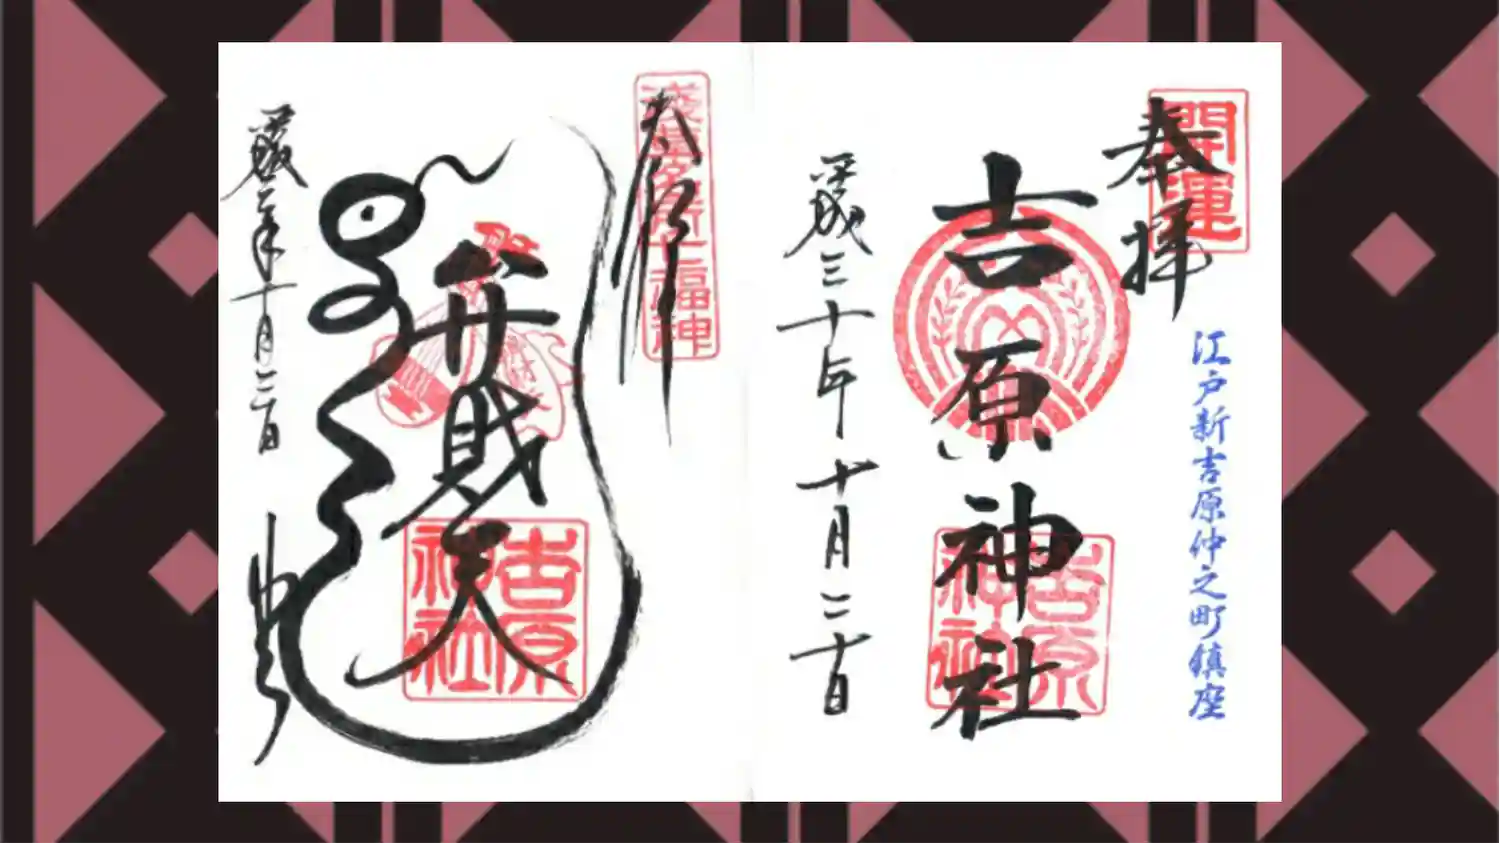 開運
奉拝
江戸新吉原仲之町鎮座
吉原神社
吉原神社
平成三十年十月二十日
浅草名所七福神
奉拝
弁財天
吉原神社